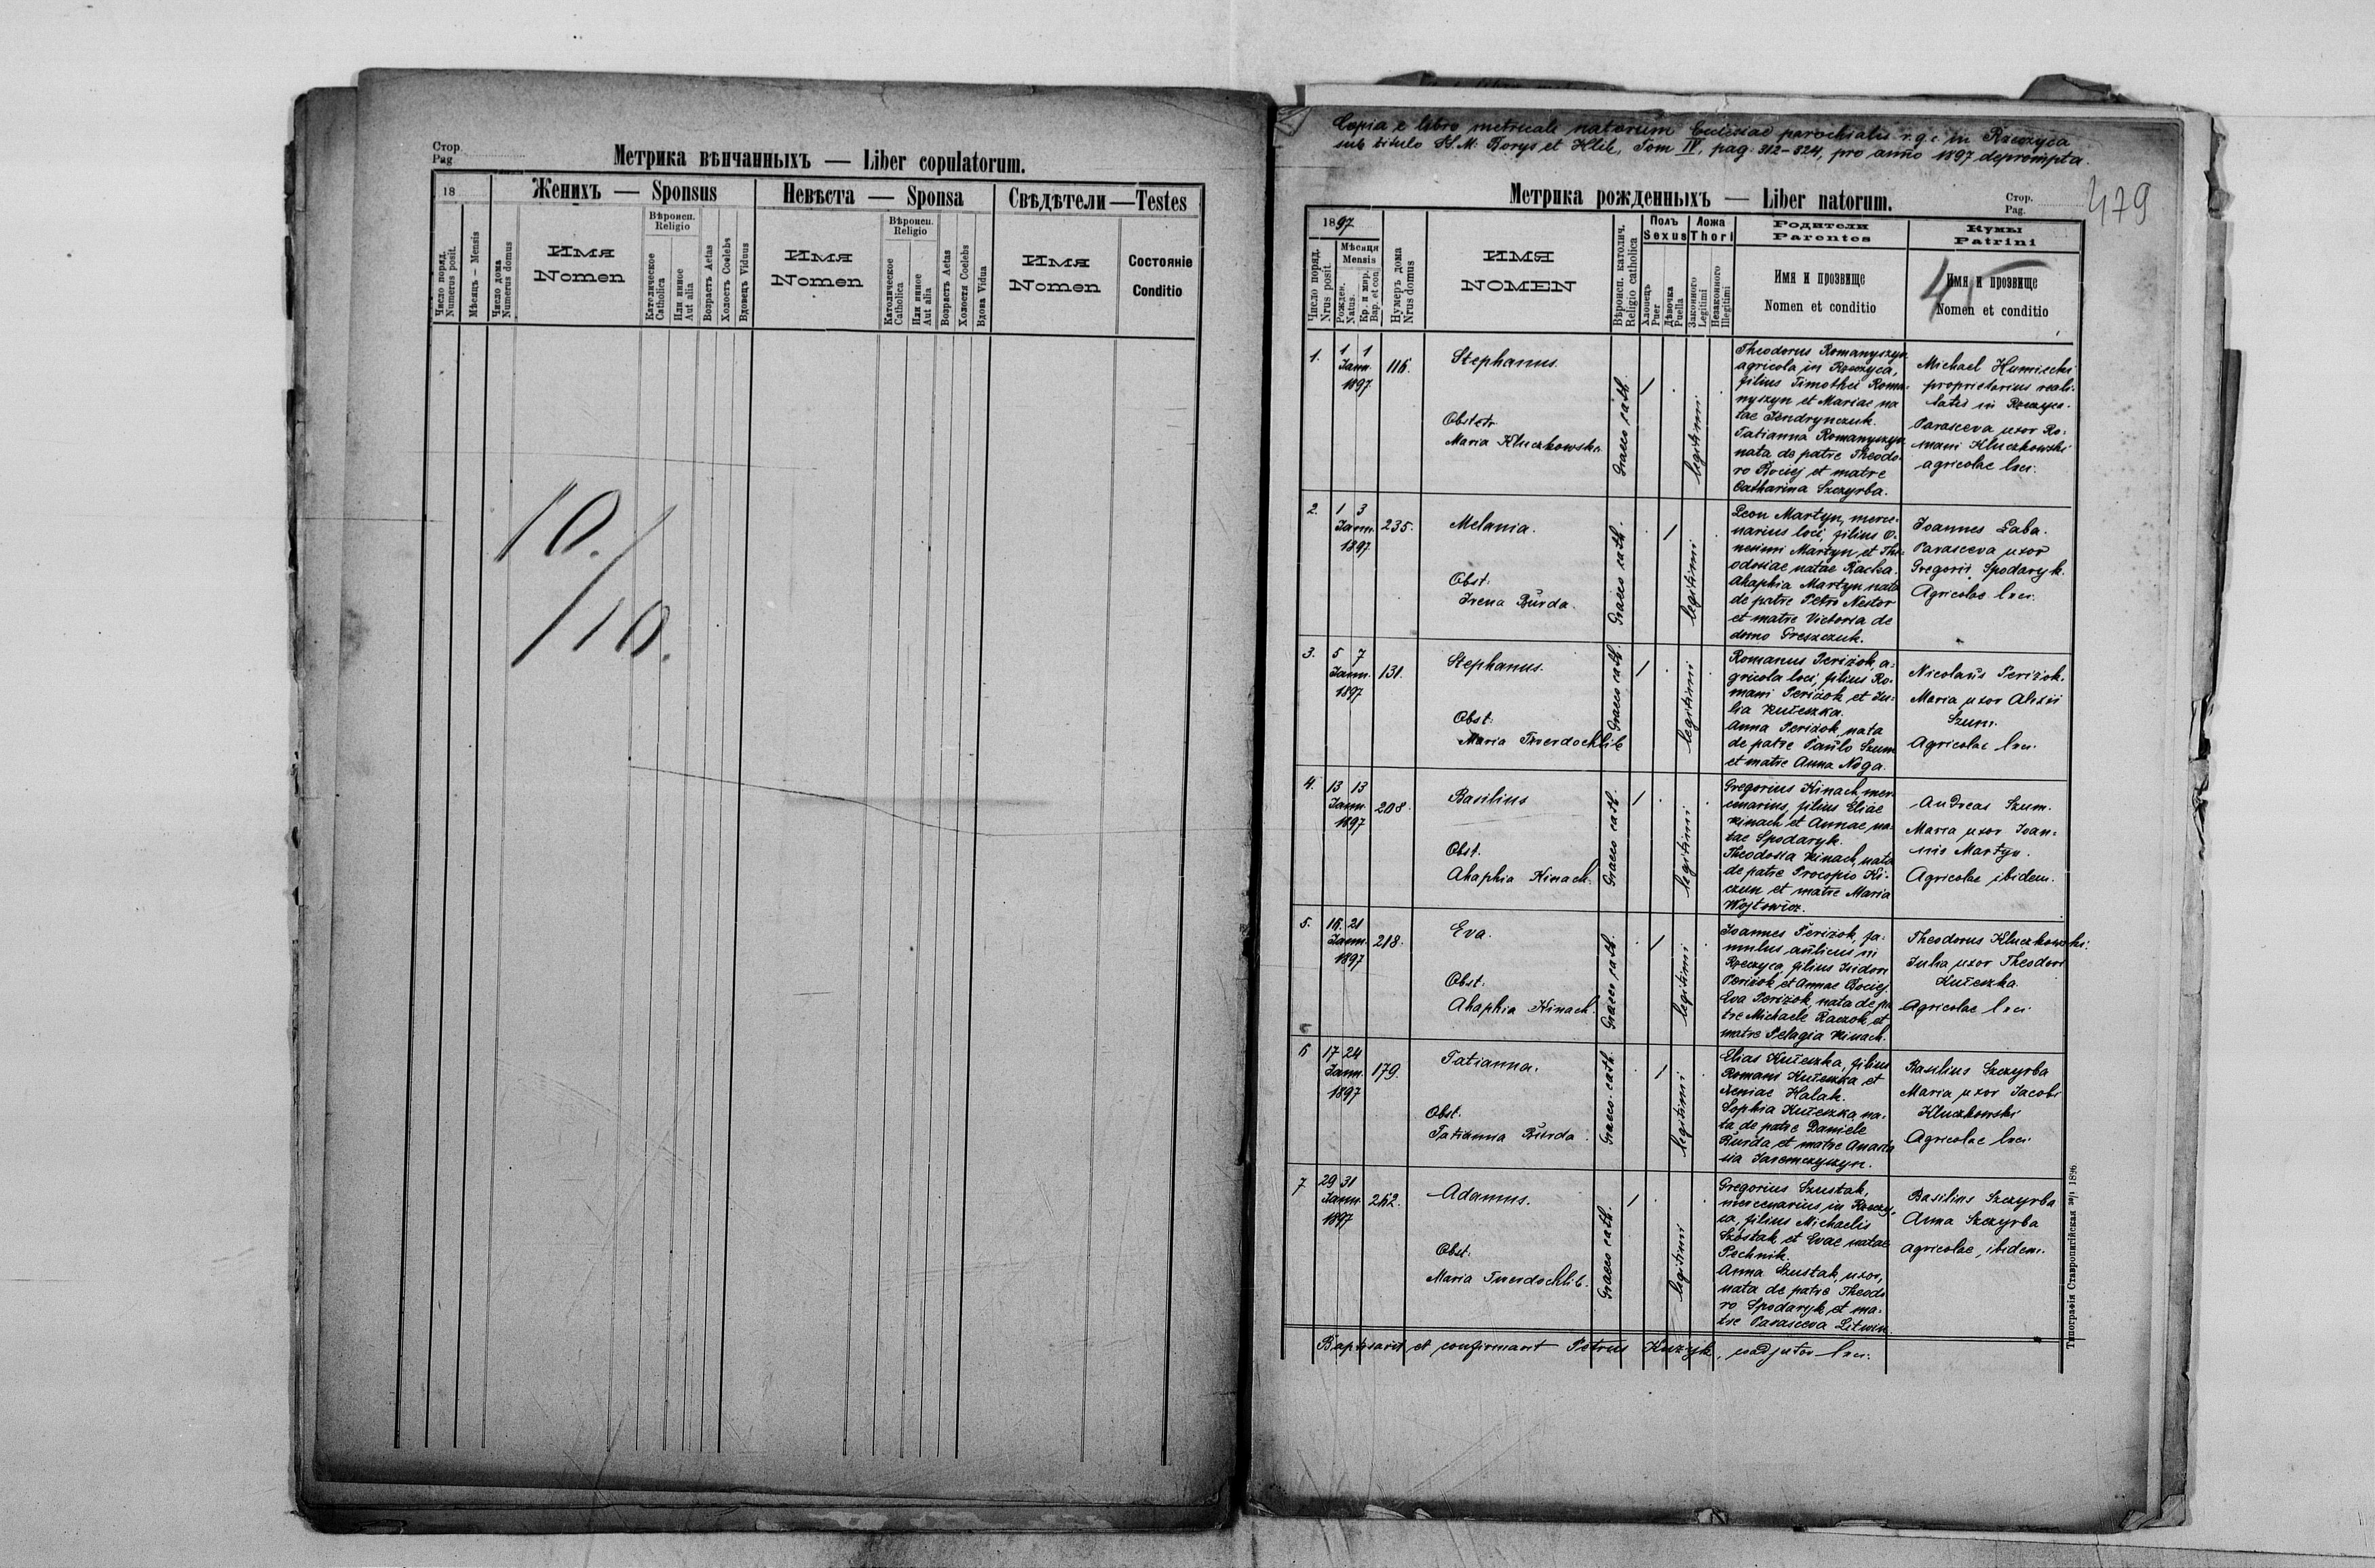 Стор.
Pag
Метрика вѣнчанныхъ — Liber copulatorum.
18
Женихъ — Sponsus
Невѣста — Sponsa
Свѣдѣтели — Testes
Число поряд.
Numerus posit.
Мѣсяцъ – Mensis
Число дома
Numerus domus
Имя
Nomen
Вѣроисп.
Religio
Католическое
Catholica
Или инное
Aut alia
Возрастъ Aetas
Холостъ Coelebs
Вдовецъ Viduus
Имя
Nomen
Вѣроисп.
Religio
Католическое
Catholica
Или инное
Aut alia
Возрастъ Aetas
Холостя Coelebs
Вдова Vidua
Имя
Nomen
Состояніе
Conditio
10.
10.
Copia e libro metricali natorum Ecclesiae parochialis r. g. c. in Rzeczyca
sub titulo SS. M. Borys et Hlib, Tom IV, pag. 312–324, pro anno 1897 deprompta.
479
Метрика рожденныхъ — Liber natorum.
Стор.
Pag.
1897
Число поряд.
Nrus posit.
Мѣсяця
Mensis
Рожден.
Natus.
Кр. и мир.
Bap. et con.
Нумеръ дома
Nrus domus
ИМЯ
NOMEN
Вѣроисп. католич.
Religio catholica
Полъ
Sexus
Хлопецъ
Puer
Дѣвочка
Puella
Ложа
Thori
Законного
Legitimi
Незаконного
Illegitimi
Родители
Parentes
Имя и прозвище
Nomen et conditio
Кумы
Patrini
Имя и прозвище
Nomen et conditio
1. 1 1
Jann.
1897
116.
Stephanus.
Obstetr.
Maria Kluczkowska
Graeco cath.
legitimi
Theodorus Romanyszyn
agricola in Rzeczyca,
filius Timothei Roma-
nyszyn et Mariae na
tae Jendrynczuk.
Tatianna Romanyszyn
nata de patre Theodo-
ro Bociej et matre
Catharina Szczyrba.
Michael Humiecki
proprietarius reali-
tatis in Rzeczyca.
Parasceva uxor Ro-
mani Kluczkowski
agricolae loci.
2. 1 3
Jann.
1897
235.
Melania.
Obst.
Irena Burda.
Graeco cath.
legitimi
Leon Martyn, merce-
narius loci, filius O-
nesimi Martyn et The-
odosiae natae Raczka.
Ahaphia Martyn nata
de patre Petro Nestor
et matre Victoria de
domo Greszczuk.
Joannes Łaba.
Parasceva uxor
Gregorii Spodaryk.
Agricolae loci.
3. 5 7
Jann.
1897
131.
Stephanus.
Obst.
Maria Twerdochlib
Graeco cath.
legitimi
Romanus Perizok, a-
gricola loci, filius Ro-
mani Perizok et Ju-
lia Kuteszka.
Anna Perizok, nata
de patre Paulo Szum
et matre Anna Noga.
Nicolaus Perizok.
Maria uxor Alexii
Szum.
Agricolae loci.
4. 13 13
Jann.
1897
208.
Basilius
Obst.
Ahaphia Kinach.
Graeco cath.
legitimi
Gregorius Kinach, mer-
cenarius, filius Eliae
Kinach et Annae na-
tae Spodaryk.
Theodosia Kinach, nata
de patre Procopio Ki-
czun et matre Maria
Wojtowicz.
Andreas Szum.
Maria uxor Joan-
nis Martyn.
Agricolae ibidem.
5. 16 21
Jann.
1897
218.
Eva.
Obst.
Ahaphia Kinach.
Graeco cath.
legitimi
Joannes Perizok, fa-
mulus aulicus in
Rzeczyca, filius Isidori
Perizok et Annae Bociej
Eva Perizok, nata de pa
tre Michaele Raczok et
matre Pelagia Kinach.
Theodorus Kluczkowski.
Julia uxor Theodori
Kuteszka.
Agricolae loci
6 17 24
Jann.
1897
179.
Tatianna.
Obst.
Tatianna Burda.
Graeco-cath.
legitimi
Elias Kuteszka, filius
Romani Kuteszka et
Xeniae Halak.
Sophia Kuteszka na-
ta de patre Daniele
Burda et matre Anasta
sia Jaremczyszyn.
Basilius Szczyrba
Maria uxor Jacobi
Kluczkowski
Agricolae loci
7 29 31
Jann.
1897
262.
Adamus.
Obst.
Maria Twerdochlib.
Graeco cath.
legitimi
Gregorius Szustak,
mercenarius in Rzeczy-
ca, filius Michaelis
Szostak et Evae natae
Pechnik.
Anna Szustak, uxor,
nata de patre Theodo
ro Spodaryk et ma-
tre Parasceva Litwin.
Basilius Szczyrba
Anna Szczyrba
agricolae, ibidem.
Baptisavit et confirmavit Petrus Kuzyk, coadjutor loci.
Типографія Ставропигійская 1896